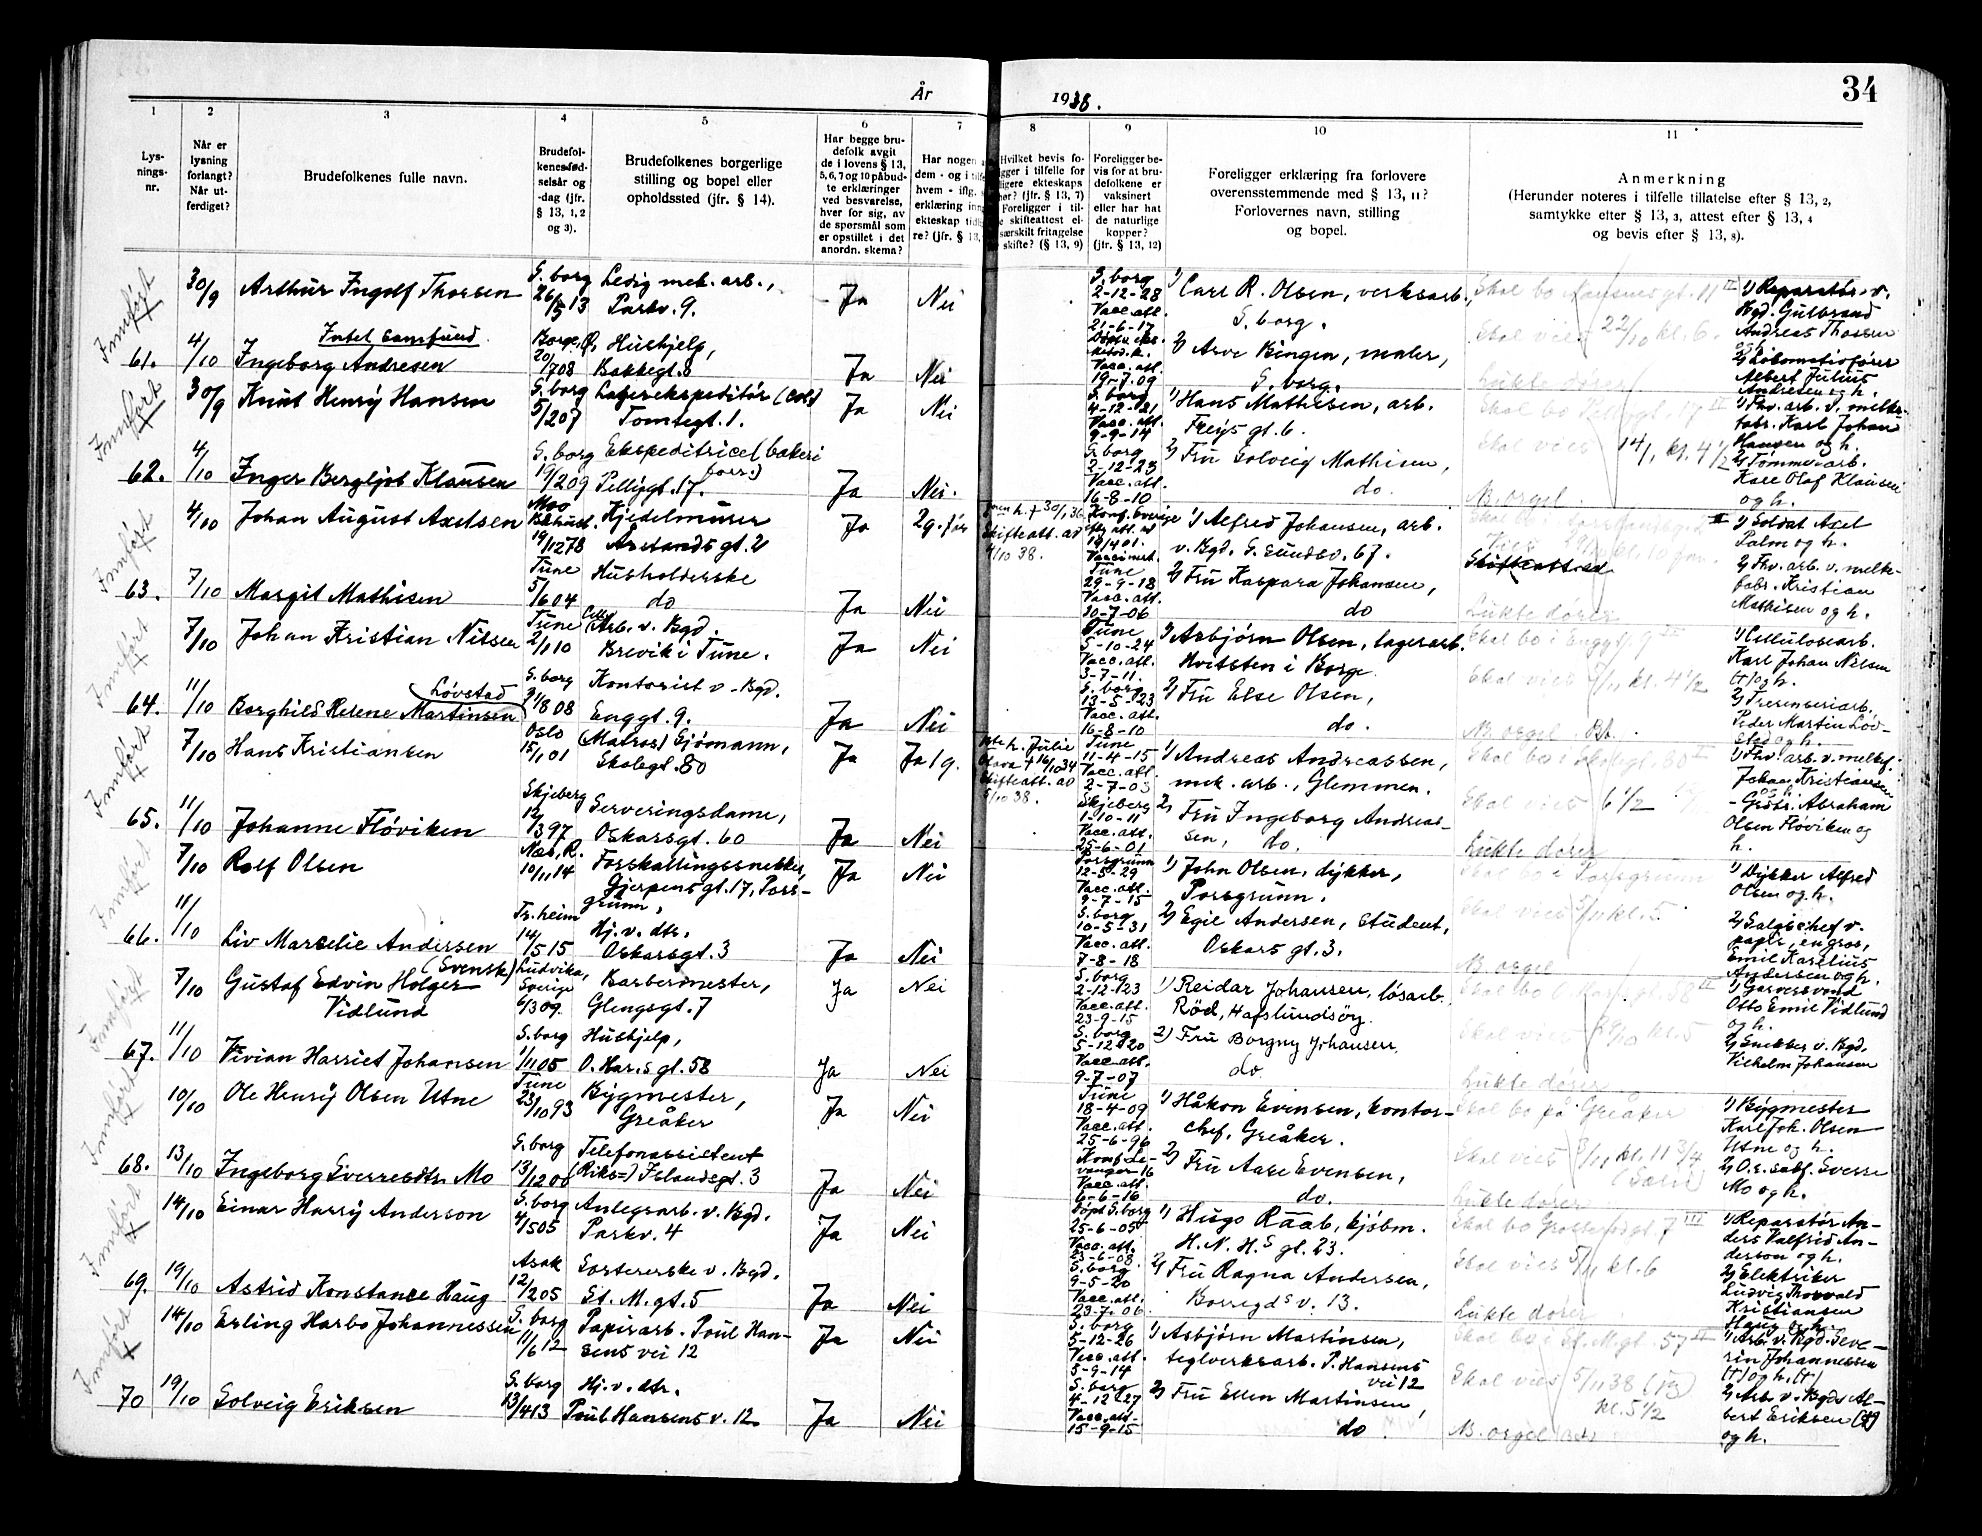 År 1938.
34
1 2 3 4 5 6 7 8 9 10 11
Lysningsnr.
Når er lysning forlangt? Når utferdiget?
Brudefolkenes fulle navn.
Brudefolkenes fødselsår og -dag (jfr. § 13, 1, 2 og 3).
Brudefolkenes borgerlige stilling og bopel eller opholdssted (jfr. § 14).
Har begge brudefolk avgit de i lovens § 13, 5, 6, 7 og 10 påbudte erklæringer ved besvarelse, hver for sig, av de spørsmål som er opstillet i det anordn. skema?
Har nogen
dem - og i
hvem - iflg.
erklæring
ekteskap
re? (jfr. § 13,
Hvilket bevis fo-
gger i tilfelle for
ligere ekteskaps
(jfr. § 13, 7)
Foreligger i til-
skifteattest el-
særskilt fritagelse
skifte? (§ 13, 9)
Foreligger bevis for at brudefolkene er vaksinert eller har hat de naturlige kopper? (jfr. § 13, 12)
Foreligger erklæring fra forlovere overensstemmende med § 13, 11? Forlovernes navn, stilling og bopel.
Anmerkning
(Herunder noteres i tilfelle tillatelse efter § 13, 2, samtykke efter § 13, 3, attest efter § 13, 4 og bevis efter § 13, 8).
Innført
30/9 Arthur Ingolf Thorsen
S. borg 26/5 13
Ledig mek. arb., Parkv. 9.
Ja Nei
S. borg 2-12-28 Vacc. att. 21-6-17
1) Carl R. Olsen, verksarb., S. borg.
22/10 kl. 6.
1) Reparatør v. Bgd. Gulbrand Andreas Thorsen og h.
61. 4/10 Ingeborg Andresen
20/7 08
Hushjelp, Bakkegt. 8
Ja Nei
Vacc. att. 19-7-09
2) Arve Bingen, maler, S. borg.
2) Lokomotivfører Albert Julius Andresen og h.
Innført
30/9 Knut Henry Hansen
S. borg 5/2 07
Lagerekspeditør
Tomtegt. 1.
Ja Nei
S. borg 4-12-21 Vacc. att. 9-9-14
1) Hans Mathisen, arb. Freys gt. 6.
62. 4/10 Inger Bergljot Klausen
S. borg 19/2 09
Ekspeditrice (bakeri forr.) Pellygt. 17.
Ja Nei.
S. borg 2-12-23 Vacc. att. 16-8-10
2) Fru Solveig Mathisen, do.
14/1 kl. 4 1/2
2) Tømmerarb. Kare Olaf Klausen og h.
N. orgel.
Innført
4/10 Johan August Axelsen
19/12 78
Kjedelmurer
Ja 2g. før
Skifteatt. ad 4/10 38.
1) Alfred Johansen, arb. v. Bgd. S. Sundsv. 67.
1) Soldat Axel Palm og h.
63. 7/10 Margit Mathisen
Tune 5/6 04
Husholderske do
Ja Nei
Tune 29-9-18 Vacc. att. 10-7-06
2) Fru Kaspara Johansen, do
2) Fhv. arb. v. melkefabr. Kristian Mathisen og h.
Lukte dører
Innført
7/10 Johan Kristian Nilsen
Tune 2/1 10
Arb. v. Bgd. Brevik i Tune.
Ja Nei
Tune 5-10-24 Vacc. att. 3-7-11.
1) Asbjørn Olsen, lagerarb. Hvitsten i Borge
Skal bo i Enggt. 9
1) Cellulosearb. Karl Johan Nilsen (+) og h.
64. 11/10 Borghild Helene Martinsen
Løvstad
S. borg 08
Kontorist v. Bgd. Enggt. 9.
Ja Nei
S. borg 13-5-23 Vacc. att. 16-8-10
2) Fru Else Olsen, do.
kl. 4 1/2
N. orgel.
Innført
7/10 Hans Kristiansen
Oslo 15/1 01
(Matros) Sjømann, Skolegt. 80
Ja Ja 1g.
Skifteatt. ad 5/10 38.
Tune 11-4-15 Vacc. att. 2-7-03
1) Andreas Andreassen, mek. arb., Glemmen.
65. 11/10 Johanne Fløviken
Skjeberg 3 97
Serveringsdame, Oskarsgt. 60
Ja Nei
Skjeberg 1-10-11 Vacc. att. 25-6-01
2) Fru Ingeborg Andreassen, do.
Abraham Olsen Fløviken og h.
Lukte dører
Innført
7/10 Rolf Olsen
Næs, R. 10/11 14
Forskallingssnekker, Gjerpens gt. 17, Porsgrunn,
Ja Nei
Porsgrunn 12-5-29 Vacc. att. 9-7-15
1) John Olsen, dykker, Porsgrunn.
Skal bo i Porsgrunn
1) Dykker Alfred Olsen og h.
66. 11/10 Liv Marselie Andersen
Tr. heim 14/5 15
Hj. v. dtr. Oskarsgt. 3
Ja Nei
S. borg 10-5-31 Vacc. att. 7-8-18
2) Egil Andersen, student, Oskars gt. 3.
kl. 5
2) Salgschef v. papir, engros, Emil Karelius Andersen og h.
N. orgel
Innført
7/10 Gustaf Edvin Holger Vidlund (Svensk)
Ludvika, Sverige 6/3 09.
Barbermester, Glengsgt. 7
Ja Nei
S. borg 2-12-23 Vacc. att. 23-9-15
1) Reidar Johansen, løsarb. Röd, Hafslundsöy.
Otto Emil Vidlund og h.
67. 11/10 Vivian Harriet Johansen
S. borg 1/11 05
Hushjelp, O. Har.s gt. 58
Ja Nei
S. borg 5-12-20 Vacc. att. 9-7-07
2) Fru Borgny Johansen, do
2) Snekker v. Bgd. Vilhelm Johansen
Lukte dører
Innført
10/10 Ole Henry Olsen Utne
Tune 23/10 93
Bygmester, Greåker
Ja Nei
Tune 18-4-09 Vacc. att. 25-6-96
1) Håkon Evensen, kontorchef, Greåker.
Skal bo på Greåker
1) Bygmester Karl Joh. Olsen Utne og h.
68. 13/10 Ingeborg Sverresdtr. Mo
S. borg 13/12 00
Telefonassistent (Riks-) Islandsgt. 3
Ja Nei
Konf. Levanger 16 Vacc. att. 6-6-16
2) Fru Aase Evensen, do.
kl. 11 3/4
Sverre Mo og h.
Lukte dører
Innført
14/10 Einar Harry Anderson
S. borg 4/5 05
Anlegsarb. v. Bgd. Parkv. 4
Ja Nei
Døpt S. borg 25-6-05 Vacc. att. 23-6-08
1) Hugo Raab, kjøbm. H. N. H.s gt. 23.
1) Reparatør Anders Valfrid Anderson og h.
69. 19/10 Astrid Konstance Haug
Asak 12/2 05
Sortererske v. Bgd. St. M. gt. 5
Ja Nei
S. borg 9-5-20 Vacc. att. 23-7-06
2) Fru Ragna Andersen, Borregds v. 13.
Skal vies 5/11 kl. 6
2) Elektriker Ludvig Thorvald Kristiansen Haug og h.
Lukte dører
Innført
14/10 Erling Harbo Johannessen
S. borg 11/6 12
Papirarb. Poul Hansens vei 12
Ja Nei
S. borg 5-12-26 Vacc. att. 5-9-14
1) Asbjørn Martinsen, teglverksarb. P. Hansens vei 12
1) Arb. v. Bgd. Severin Johannessen (+) og h. (+)
70 19/10 Solveig Eriksen
S. borg 13/4 13
Hj. v. dtr. Poul Hansens v. 12
Ja Nei
S. borg 4-12-27 Vacc. att. 15-9-15
2) Fru Ellen Martinsen, do
Skal vies 5/11 38 kl. 5 1/2
2) Arb. v. Bgds Albert Eriksen (+) og h.
N. orgel